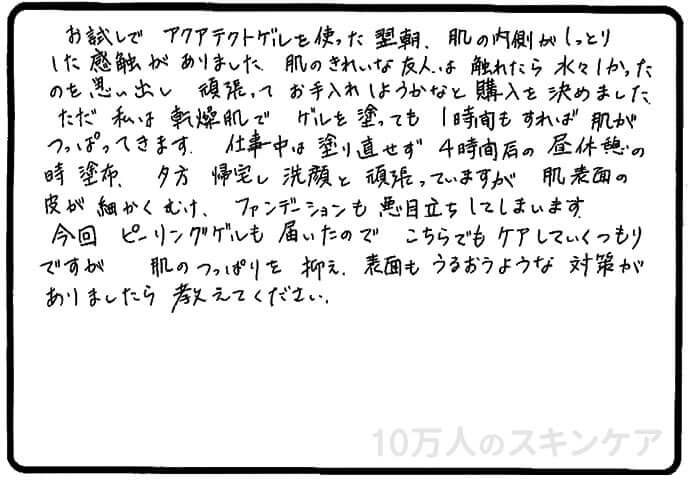 お試しで アクアテクトゲルを使った翌朝、肌の内側がしっとり
した感触がありました。肌のきれいな友人は触れたら水々しかった
のを思い出し 頑張ってお手入れしようかなと購入を決めました。
ただ私は乾燥肌で ゲルを塗っても1時間もすれば肌が
つっぱってきます。仕事中は塗り直せず4時間后の昼休憩の
時塗布、夕方帰宅し洗顔と頑張っていますが 肌表面の
皮が細かくむけ、ファンデーションも悪目立ちしてしまいます。
今回 ピーリングゲルも届いたので こちらでもケアしていくつもり
ですが 肌のつっぱりを抑え、表面もうるおうような対策が
ありましたら教えてください。
10万人のスキンケア